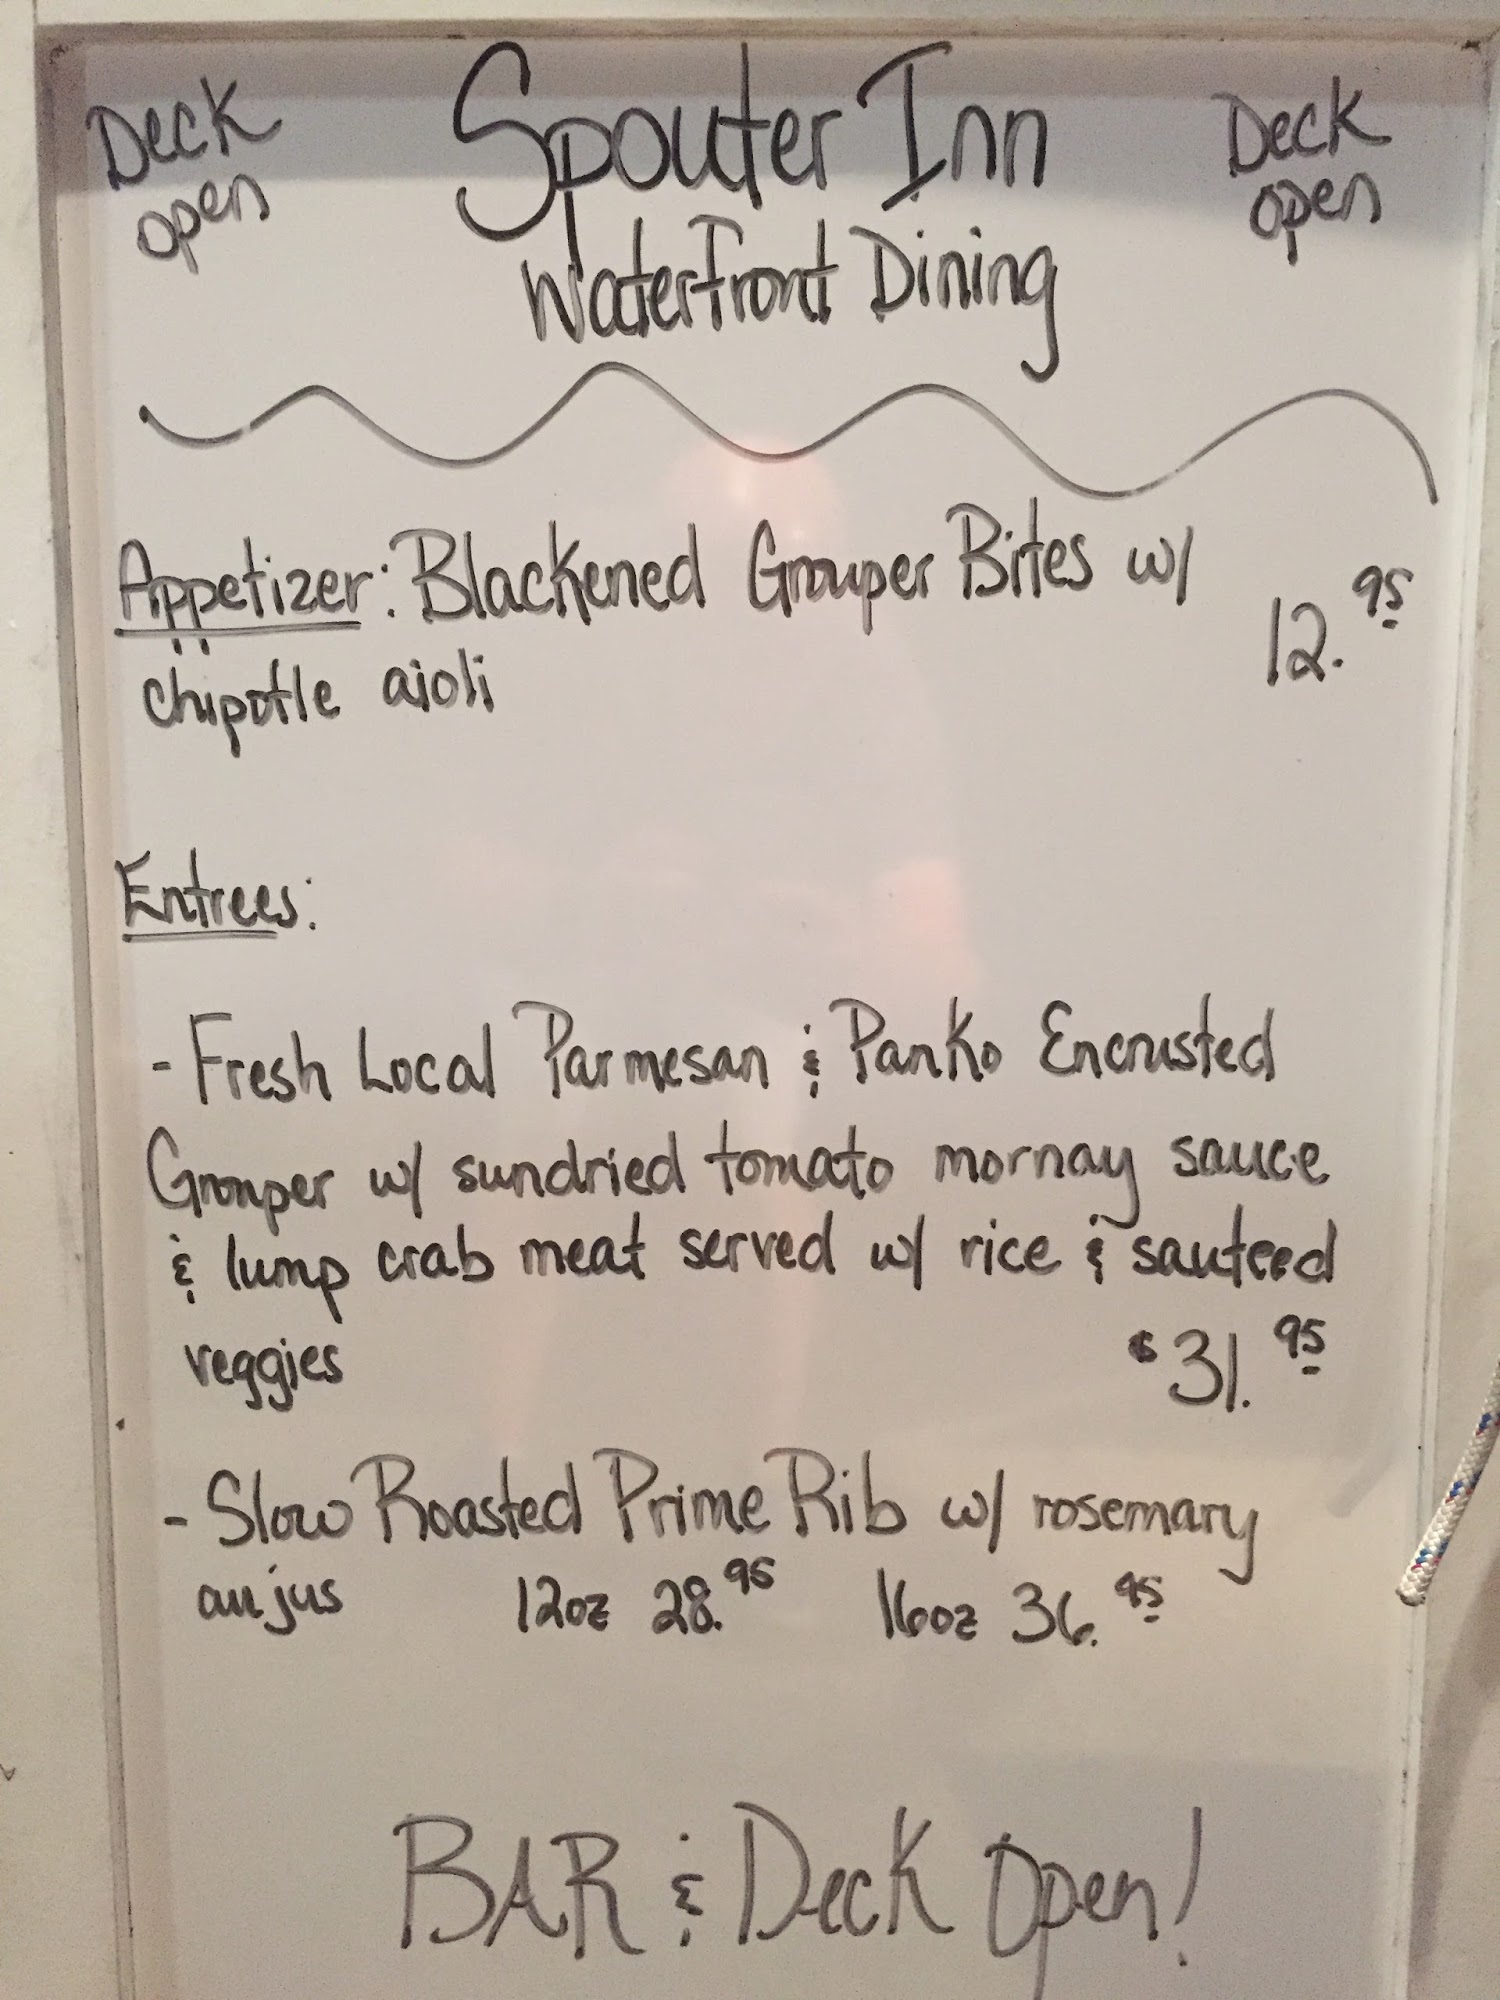 Deck open Spouter Inn Deck open
Waterfront Dining
Appetizer: Blackened Grouper Bites w/
chipotle aioli 12.95
Entrees:
- Fresh Local Parmesan & Panko Encrusted
Grouper w/ sundried tomato mornay sauce
& lump crab meat served w/ rice & sauteed
veggies $31.95
- Slow Roasted Prime Rib w/ rosemary
au jus 12oz 28.95 16oz 36.95
BAR & Deck Open!